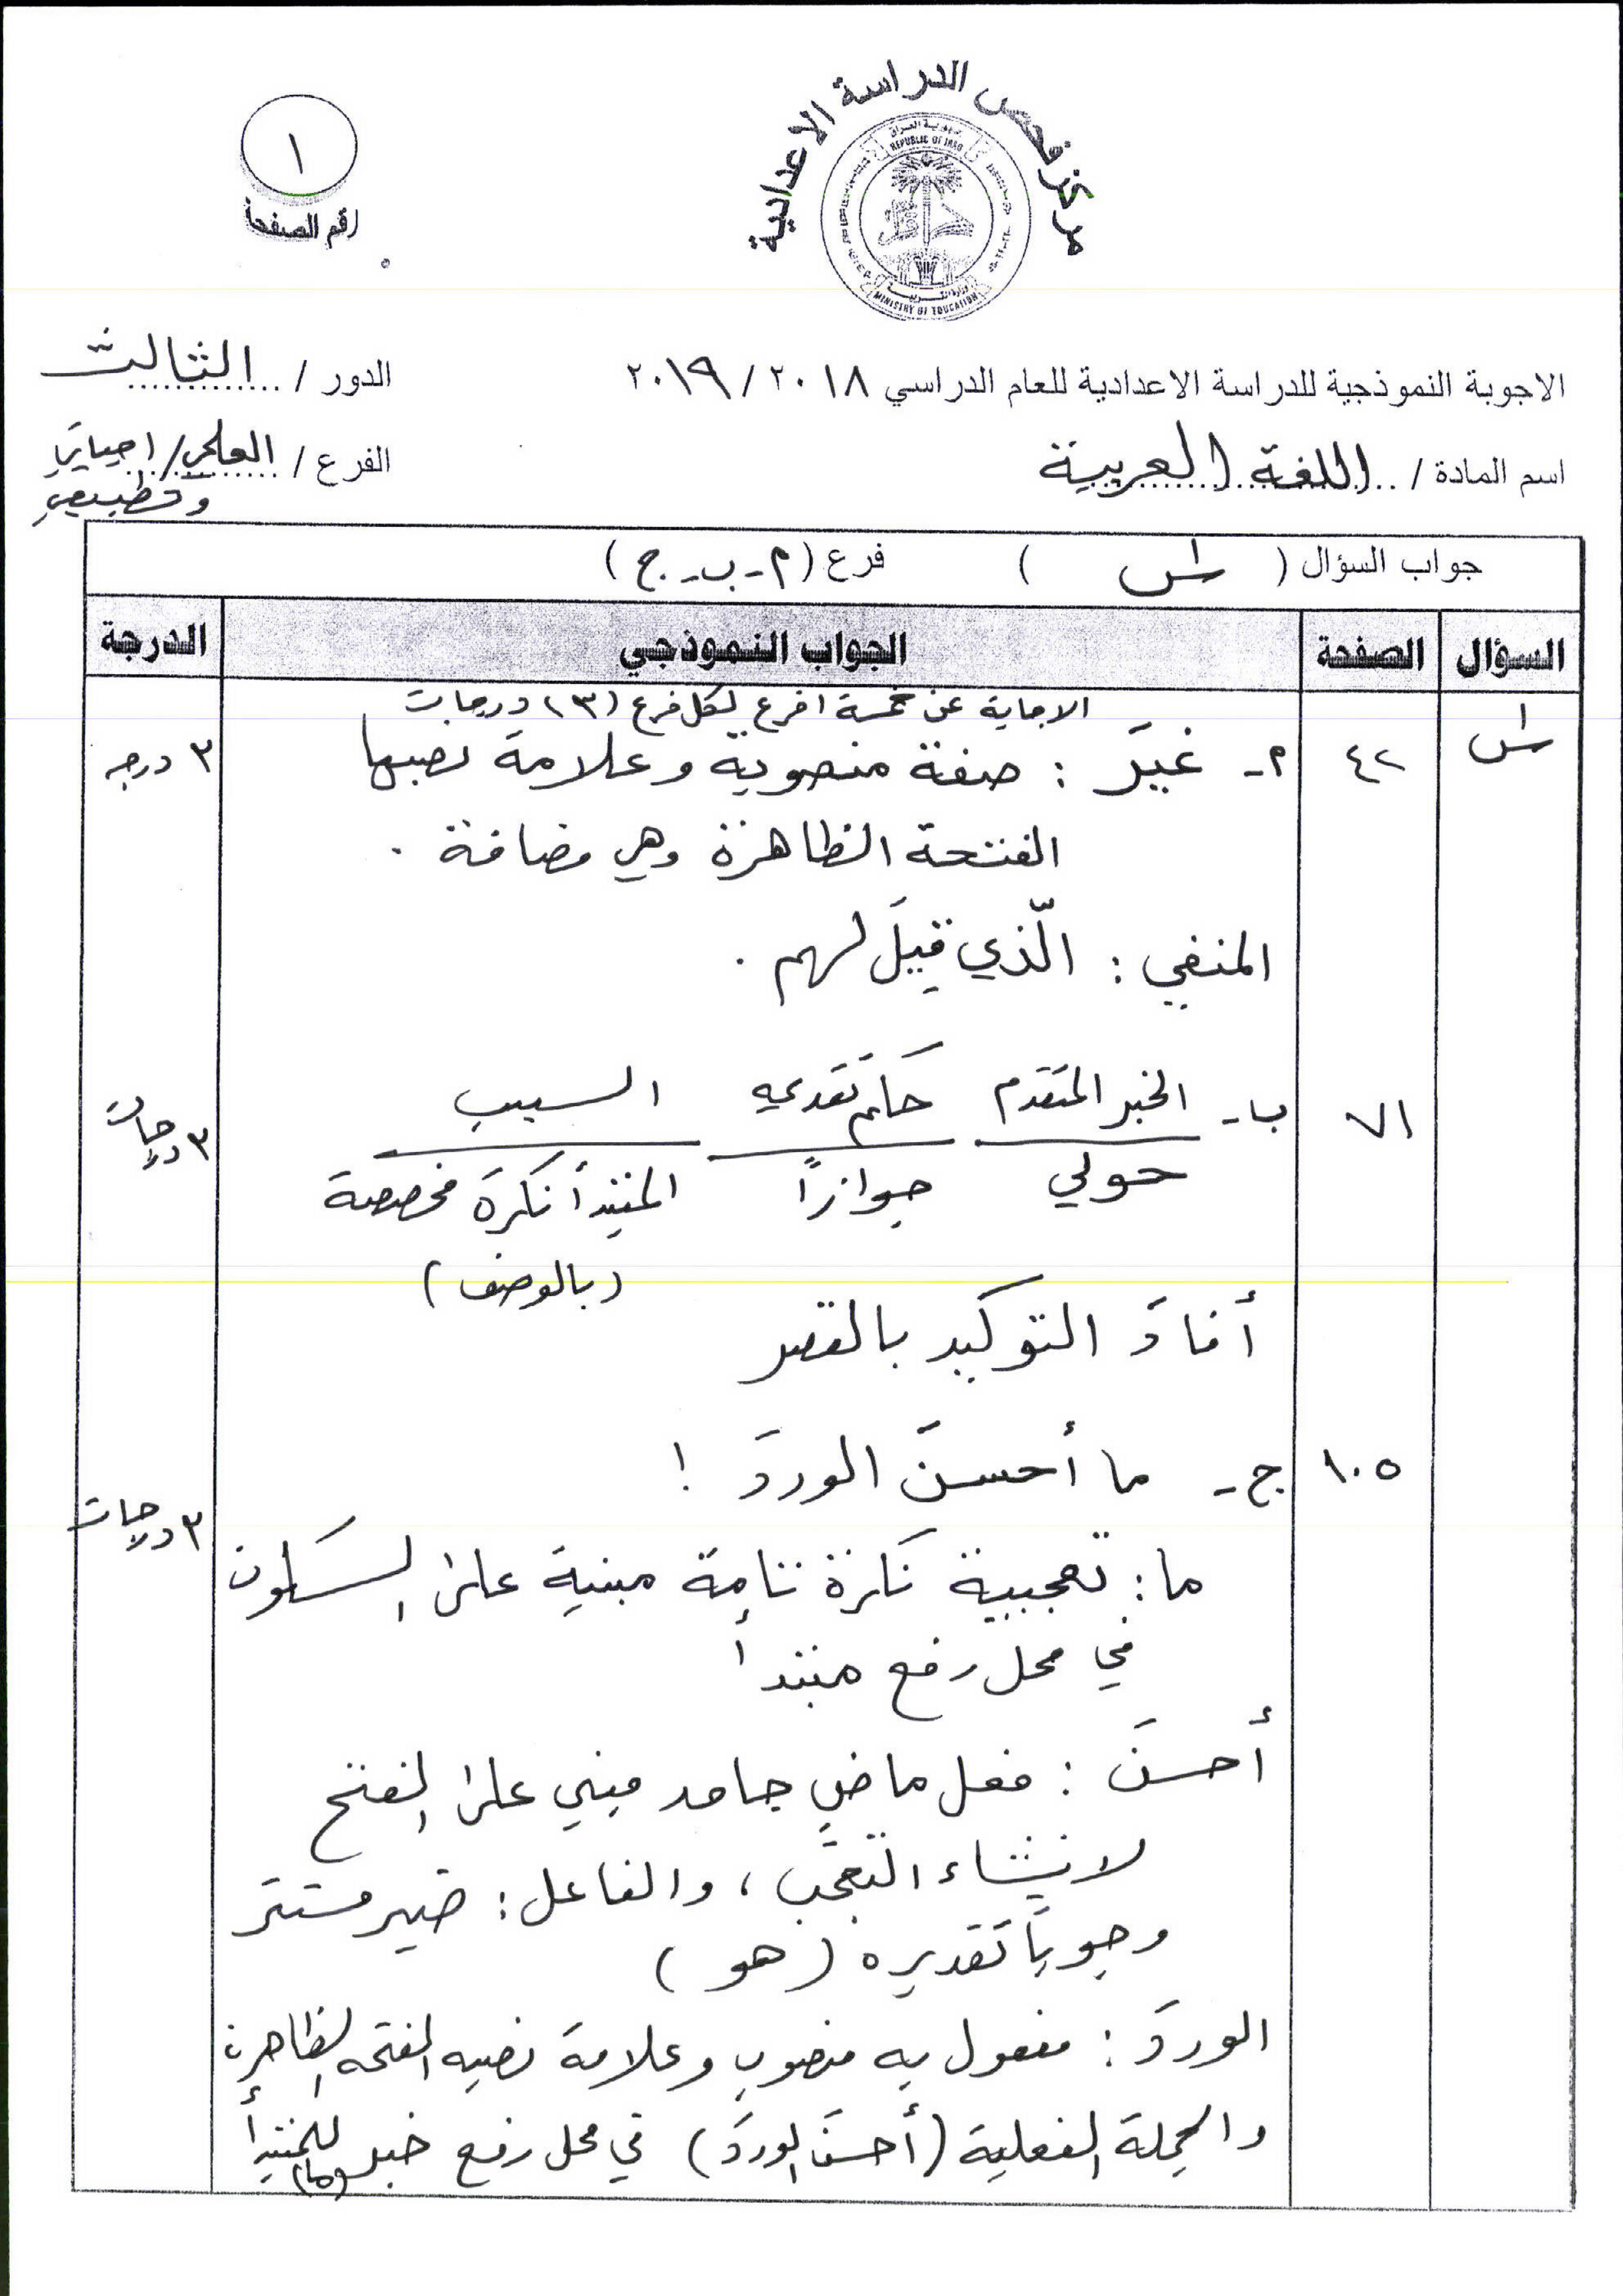 مركز فحص الدراسة الاعدادية
جمهورية العراق
REPUBLIC OF IRAQ
MINISTRY OF EDUCATION
١
رقم الصفحة
الاجوبة النموذجية للدراسة الاعدادية للعام الدراسي ٢٠١٨ / ٢٠١٩
الدور / الثالث
اسم المادة / اللغة العربية
الفرع / العلمي / احيائي
وتطبيقي
جواب السؤال ( س١ ) فرع ( أ - ب - ج )
السؤال الصفحة الجواب النموذجي الدرجة
الاجابة عن خمسة افرع لكل فرع (٣) درجات
س١ ٤٢ أ- غيرَ : صفة منصوبة وعلامة نصبها ٣ درجه
الفتحة الظاهرة وهي مضافة .
المنفي : الّذي قيلَ لهم .
٧١ ب- الخبر المتقدم حكم تقديمه السبب ٣ درجات
حولي جوازاً المبتدأ نكرة مخصصة
(بالوصف)
أفادَ التوكيد بالقصر
١٠٥ ج- ما أحسنَ الوردَ ! ٣ درجات
ما : تعجبية نكرة تامة مبنية على السكون
في محل رفع مبتدأ
أحسنَ : فعل ماضٍ جامد مبني على الفتح
لانشاء التعجّب ، والفاعل : ضمير مستتر
وجوباً تقديره ( هو )
الوردَ : مفعول به منصوب وعلامة نصبه الفتحه الظاهرة
والجملة الفعلية (أحسنَ الوردَ) في محل رفع خبر للمبتدأ
(ما)